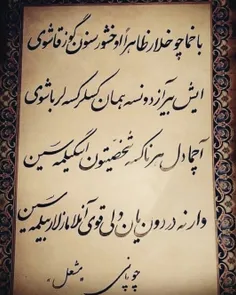 باخما چوخلار ظاهراً اوخشور سنون گوزقاشوی
ایش بیر آزدونسه همان کسلر کسه لر باشوی
آچما دل هر ناکسه شخصیتون اسگیلمه سین
وارنه دردون یان ولی قوی آنلامازلار بیلمه سین
چوپانی مشعل